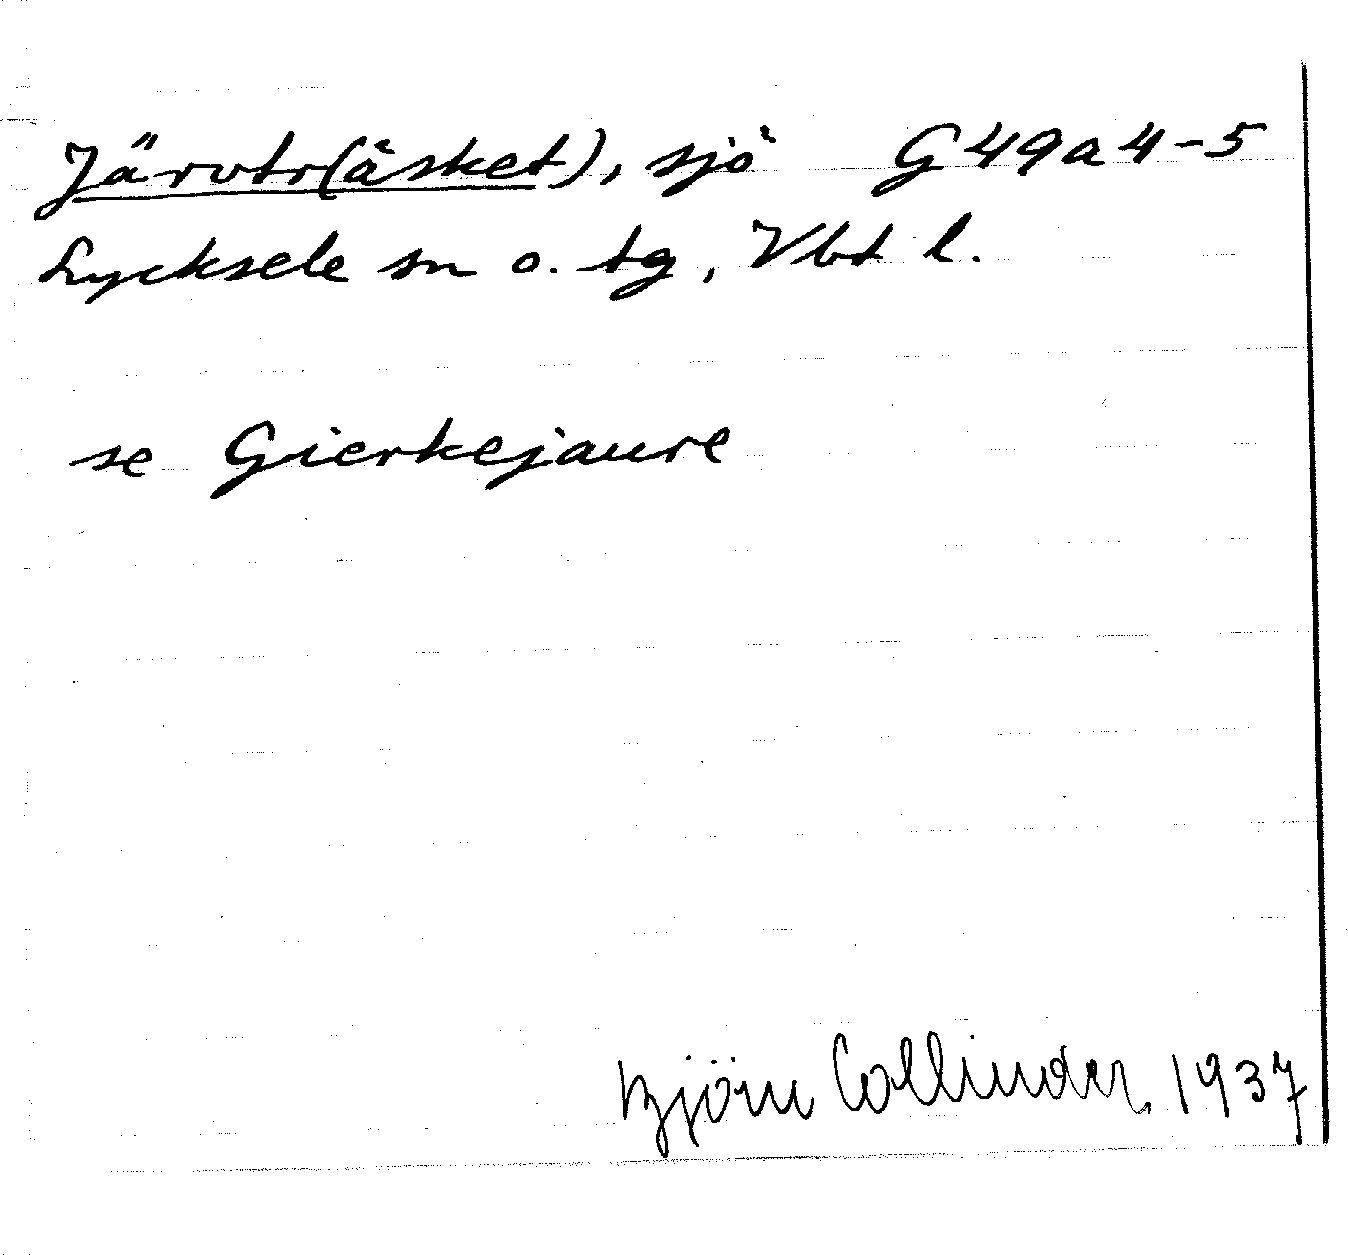 Järvtr(äsket), sjö G49a4-5
Lycksele sn o. tg, Vbt l.
se Gierkejaure
Björn Collinder 1937